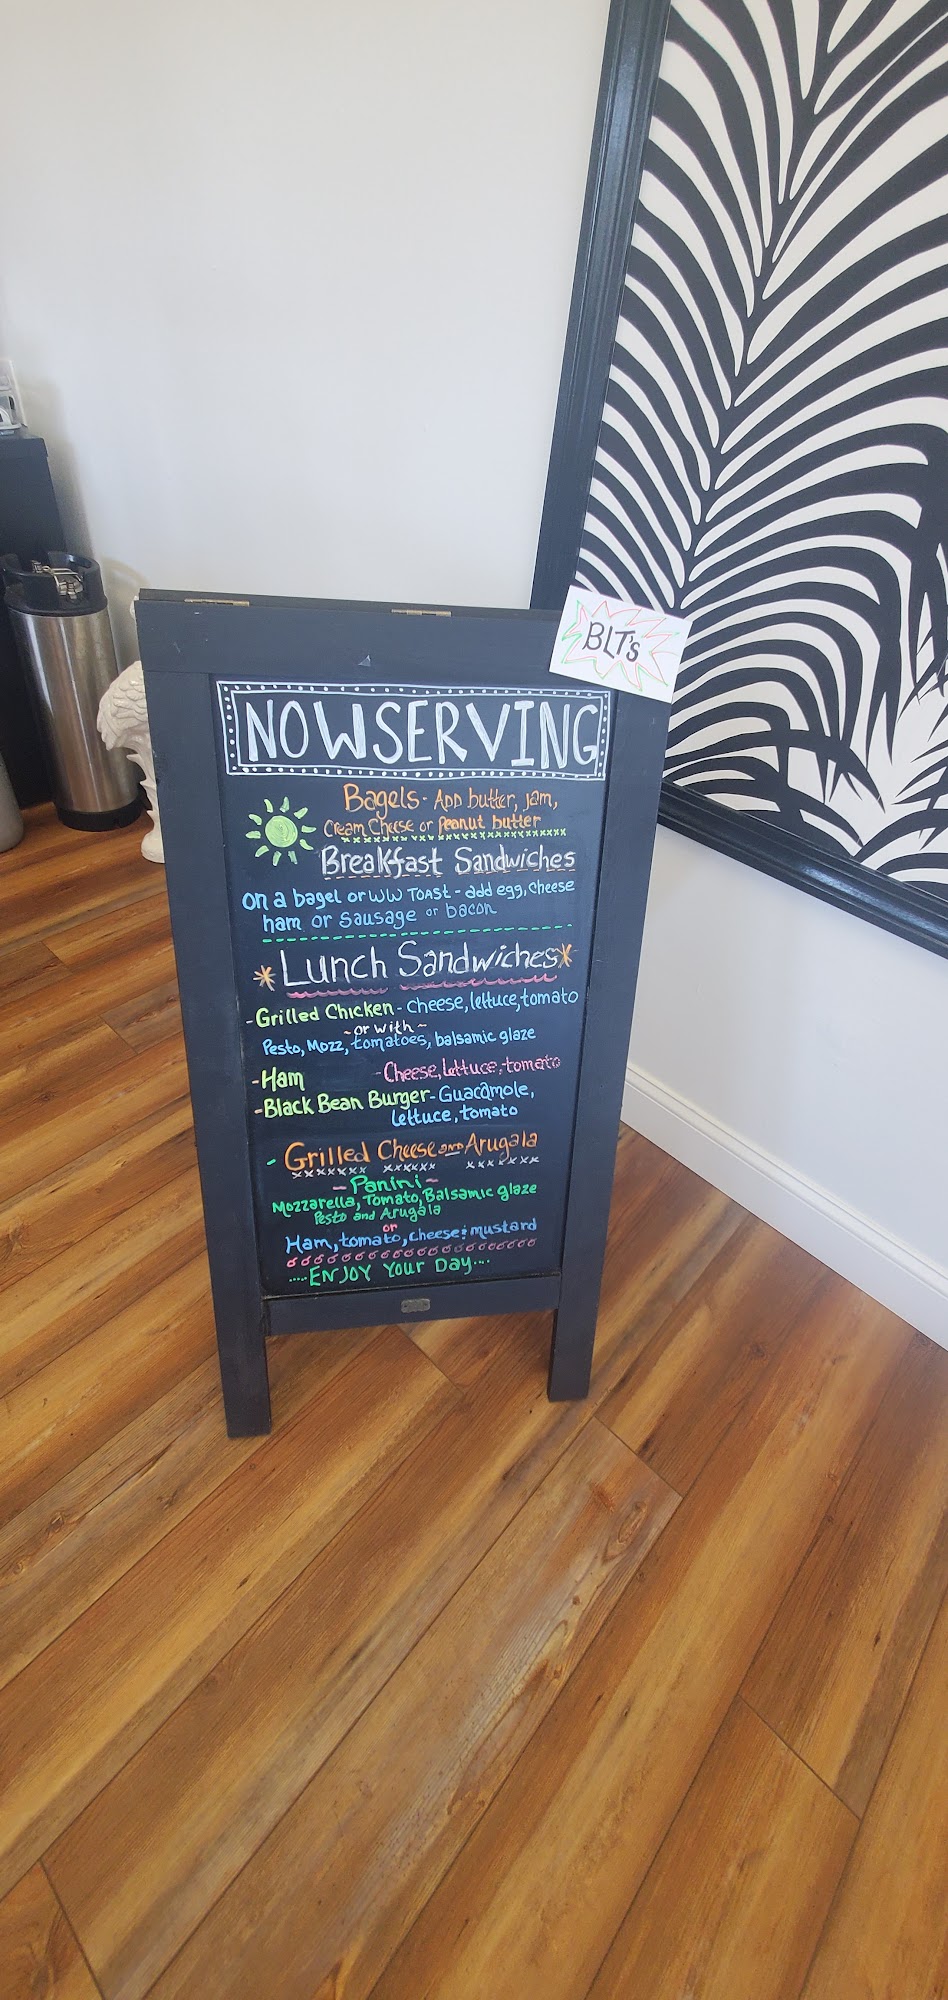 BLT's
NOW SERVING
Bagels - App butter, jam,
Cream Cheese or Peanut butter
Breakfast Sandwiches
on a bagel or WW TOAST - add egg, cheese
ham or sausage or bacon
Lunch Sandwiches
- Grilled Chicken - cheese, lettuce, tomato
~ or with ~
Pesto, Mozz, tomatoes, balsamic glaze
- Ham - Cheese, lettuce, tomato
- Black Bean Burger - Guacamole,
lettuce, tomato
- Grilled Cheese and Arugala
- Panini -
Mozzarella, Tomato, Balsamic glaze
Pesto and Arugala
or
Ham, tomato, cheese & mustard
.... ENJOY Your Day....